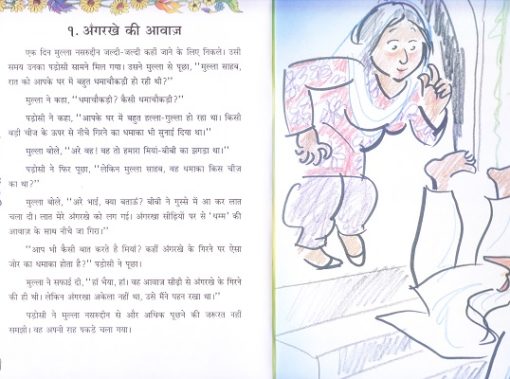 १. अंगरखे की आवाज़
एक दिन मुल्ला नसरुद्दीन जल्दी-जल्दी कहीं जाने के लिए निकले। उसी
समय उनका पड़ोसी सामने मिल गया। उसने मुल्ला से पूछा, “मुल्ला साहब,
रात को आपके घर में बहुत धमाचौकड़ी हो रही थी?”
मुल्ला ने कहा, “धमाचौकड़ी? कैसी धमाचौकड़ी?”
पड़ोसी ने कहा, “आपके घर में बहुत हल्ला-गुल्ला हो रहा था। किसी
बड़ी चीज के ऊपर से नीचे गिरने का धमाका भी सुनाई दिया था।”
मुल्ला बोले, “अरे वह! वह तो हमारा मियां-बीबी का झगड़ा था।”
पड़ोसी ने फिर पूछा, “लेकिन मुल्ला साहब, वह धमाका किस चीज
का था?”
मुल्ला बोले, “अरे भाई, क्या बताऊं? बीबी ने गुस्से में आ कर लात
चला दी। लात मेरे अंगरखे को लग गई। अंगरखा सीढ़ियों पर से ‘धम्म’ की
आवाज के साथ नीचे जा गिरा।”
“आप भी कैसी बात करते है मियां? कहीं अंगरखे के गिरने पर ऐसा
जोर का धमाका होता है?” पड़ोसी ने पूछा।
मुल्ला ने सफाई दी, “हां भैया, हां। वह आवाज सीढ़ी से अंगरखे के गिरने
की ही थी। लेकिन अंगरखा अकेला नहीं था, उसे मैंने पहन रखा था।”
पड़ोसी ने मुल्ला नसरुद्दीन से और अधिक पूछने की जरूरत नहीं
समझी। वह अपनी राह पकड़े चला गया।